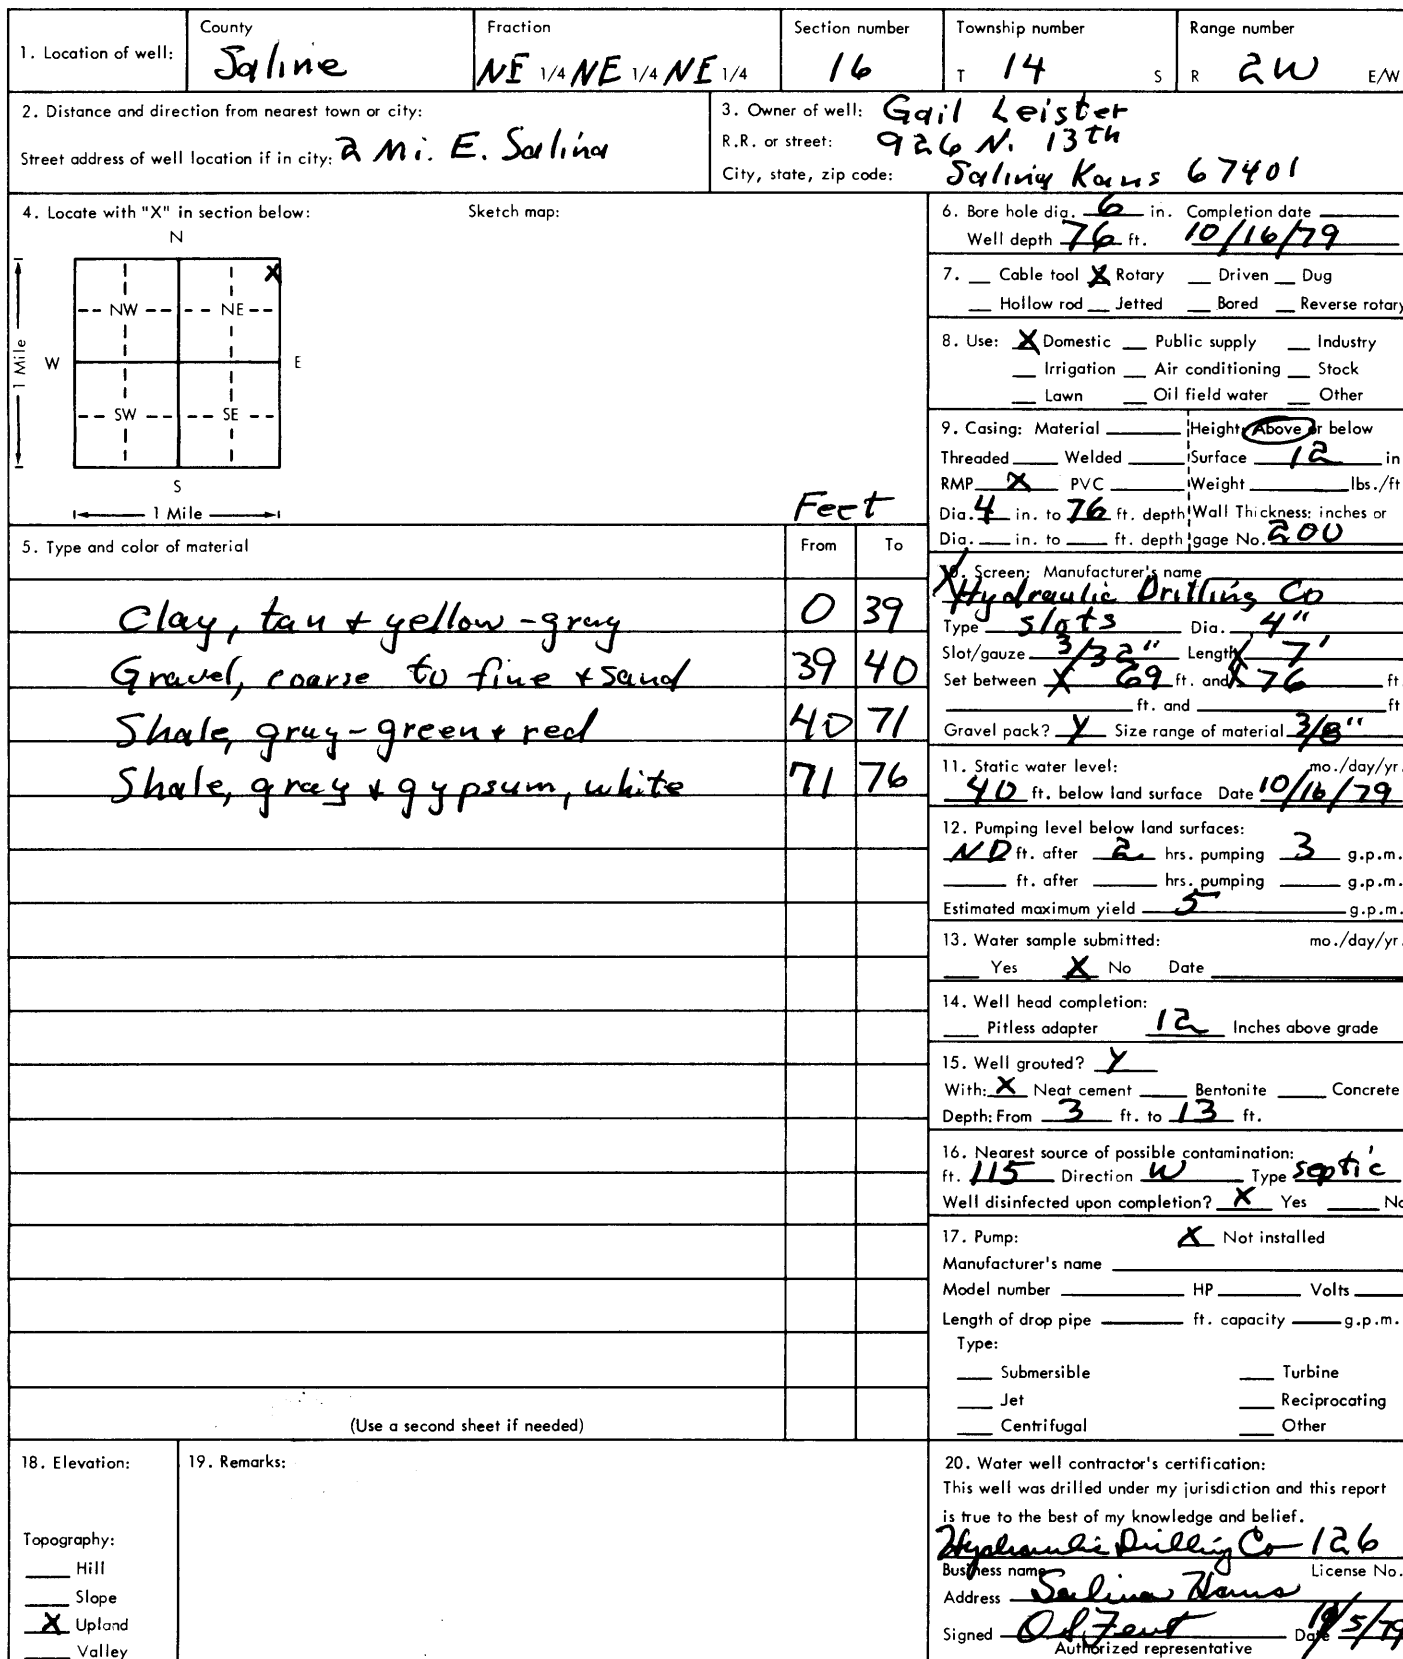 1. Location of well:
County
Saline
Fraction
NE 1/4 NE 1/4 NE 1/4
Section number
16
Township number
T 14 S
Range number
R 2W E/W
2. Distance and direction from nearest town or city:
Street address of well location if in city: 2 Mi. E. Salina
3. Owner of well: Gail Leister
R.R. or street: 926 N. 13th
City, state, zip code: Salina Kans 67401
4. Locate with "X" in section below:
Sketch map:
N
X
NW NE
W E
1 Mile
SW SE
S
1 Mile
Feet
5. Type and color of material From To
Clay, tan + yellow-gray 0 39
Gravel, coarse to fine + sand 39 40
Shale, gray-green + red 40 71
Shale, gray + gypsum, white 71 76
(Use a second sheet if needed)
6. Bore hole dia. 6 in. Completion date
Well depth 76 ft. 10/16/79
7. Cable tool X Rotary Driven Dug
Hollow rod Jetted Bored Reverse rotary
8. Use: X Domestic Public supply Industry
Irrigation Air conditioning Stock
Lawn Oil field water Other
9. Casing: Material Height: Above or below
Threaded Welded Surface 12 in
RMP X PVC Weight lbs./ft
Dia. 4 in. to 76 ft. depth Wall Thickness: inches or
Dia. in. to ft. depth gage No. 200
10. Screen: Manufacturer's name
Hydraulic Drilling Co
Type slots Dia. 4"
Slot/gauze 3/32" Length 7'
Set between X 69 ft. and X 76 ft.
ft. and ft
Gravel pack? Y Size range of material 3/8"
11. Static water level: mo./day/yr.
40 ft. below land surface Date 10/16/79
12. Pumping level below land surfaces:
ND ft. after 2 hrs. pumping 3 g.p.m.
ft. after hrs. pumping g.p.m.
Estimated maximum yield 5 g.p.m.
13. Water sample submitted: mo./day/yr.
Yes X No Date
14. Well head completion:
Pitless adapter 12 Inches above grade
15. Well grouted? Y
With: X Neat cement Bentonite Concrete
Depth: From 3 ft. to 13 ft.
16. Nearest source of possible contamination:
ft. 115 Direction W Type septic
Well disinfected upon completion? X Yes No
17. Pump: X Not installed
Manufacturer's name
Model number HP Volts
Length of drop pipe ft. capacity g.p.m.
Type:
Submersible Turbine
Jet Reciprocating
Centrifugal Other
18. Elevation:
Topography:
Hill
Slope
X Upland
Valley
19. Remarks:
20. Water well contractor's certification:
This well was drilled under my jurisdiction and this report
is true to the best of my knowledge and belief.
Hydraulic Drilling Co 126
Business name License No.
Address Salina Kans
Signed O S Fent Date /5/79
Authorized representative